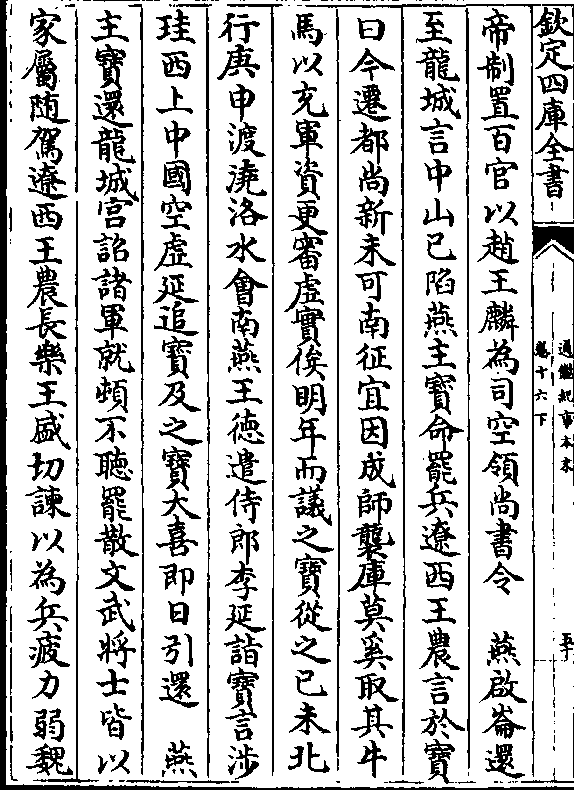 欽定四庫全書
通鑑紀事本末
卷十六下
五十
帝制置百官以趙王麟為司空領尚書令　燕啟崙還
至龍城言中山已陷燕主寶命罷兵遼西王農言於寶
曰今遷都尚新未可南征宜因成師襲庫莫奚取其牛
馬以充軍資更審虛實俟明年而議之寶從之已未北
行庚申渡澆洛水會南燕王徳遣侍郎李延詣寶言涉
珪西上中國空虛延追寶及之寶大喜即日引還　燕
主寶還龍城宮詔諸軍就頓不聽罷散文武將士皆以
家屬随駕遼西王農長樂王盛切諫以為兵疲力弱魏